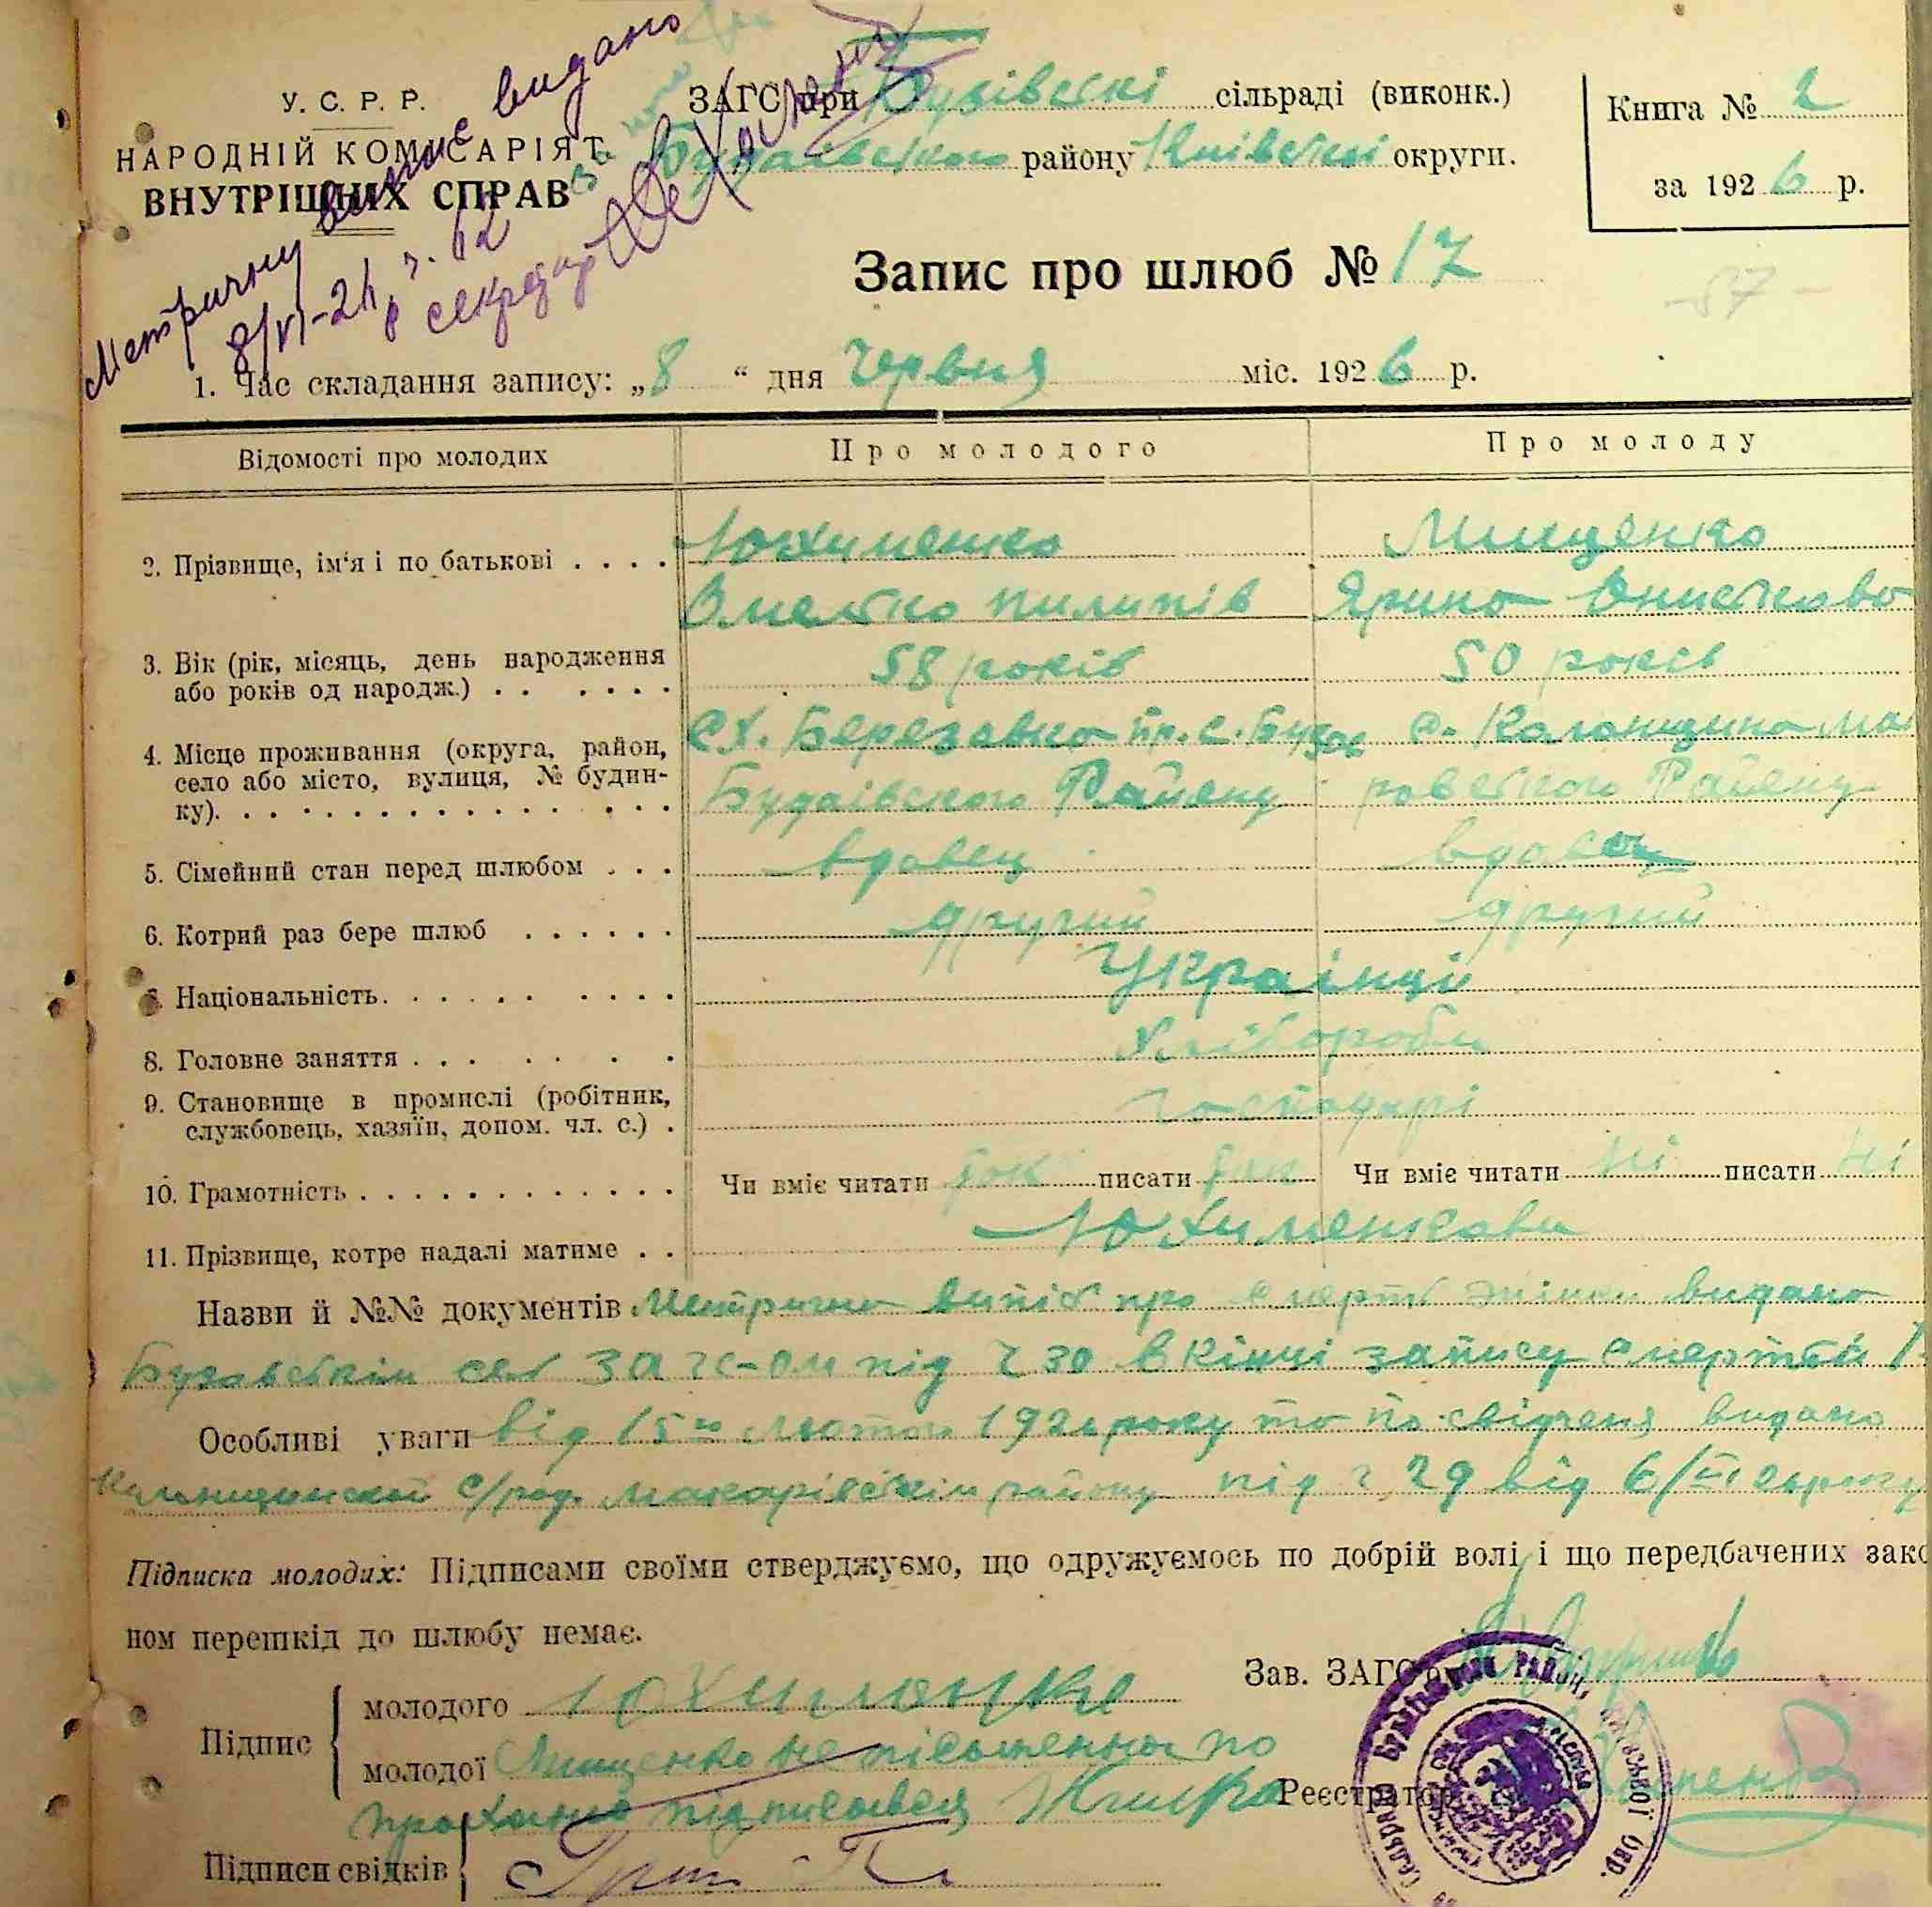 Метричну виписе видано
8/VI-26 р. ч. 12
секретар
У. С. Р. Р.
НАРОДНІЙ КОМІСАРІЯТ
ВНУТРІШНІХ СПРАВ
ЗАГС при Бузівські сільраді (виконк.)
Будаївського району Київські округи.
Книга № 2
за 1926 р.
Запис про шлюб № 17
-57-
1. Час складання запису: „8“ дня червня міс. 1926 р.
Відомості про молодих
Про молодого
Про молоду
2. Прізвище, ім'я і по батькові . . . .
Юхименко
Мищенко
Омелько Пилипів
Ярина Ониськова
3. Вік (рік, місяць, день народження або років од народж.) . . . . . .
58 років
50 років
4. Місце проживання (округа, район, село або місто, вулиця, № будинку). . . . . . . . . . . . . . . .
сх. Березавка пр. с. Бузов
Будаівського Району
с. Колонщина Мака
ровського Району
5. Сімейний стан перед шлюбом . . .
вдовец
вдова
6. Котрий раз бере шлюб . . . . . .
другий
другий
Національність. . . . . . . . . .
Українці
8. Головне заняття . . . . . .
Хлібороби
9. Становище в промислі (робітник, службовець, хазяїн, допом. чл. с.) .
господарі
10. Грамотність . . . . . . . . . . . . .
Чи вміє читати так писати так
Чи вміє читати ні писати ні
11. Прізвище, котре надалі матиме . .
Юхименкови
Назви й №№ документів Метрична випіс про смерть жінки видано
Бузовськім сіл ЗАГС-ом під ч 30 в кінці запису смертей
Особливі уваги від 15го лютого 1926 року та посвідченя видано
с/рад. Макарівскім району під ч 29 від 6/
Підписка молодих: Підписами своїми стверджуємо, що одружуємось по добрій волі і що передбачених зако
ном перешкід до шлюбу немає.
Зав. ЗАГС'ом
Підпис
молодого Юхименко
молодої Мищенко не писменна по
проханню підписався
Реєстратор
Підписи свідків